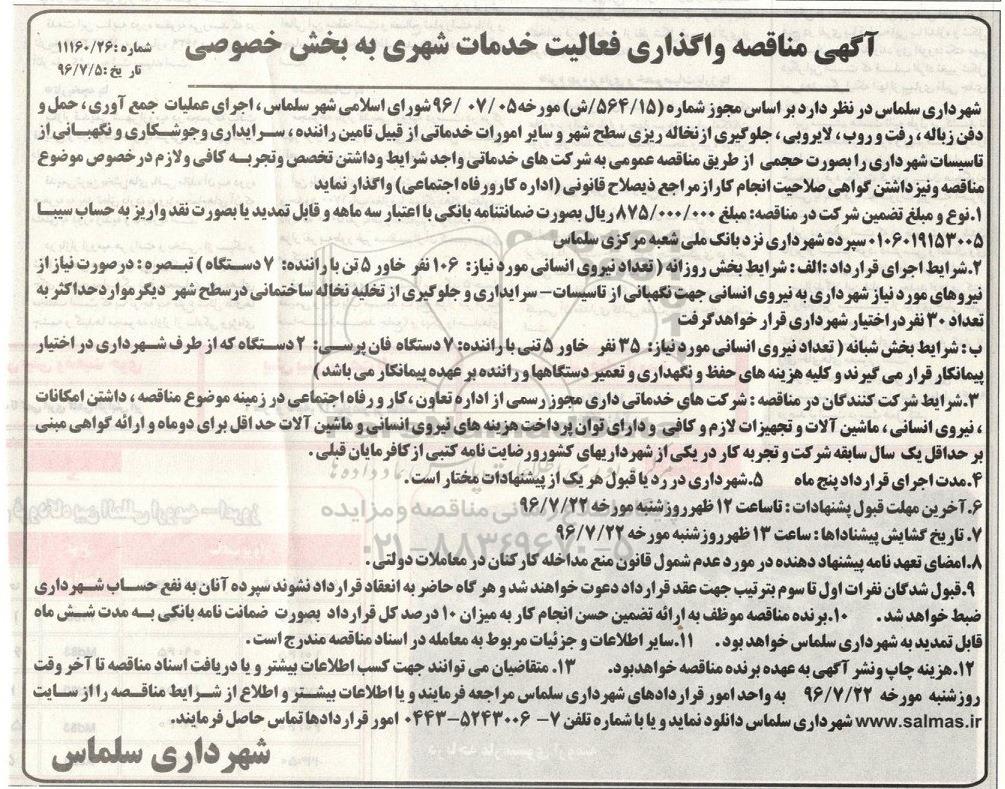 آگهی مناقصه واگذاری فعالیت خدمات شهری به بخش خصوصی
شماره: ۱۱۱۶۰/۲۶
تاریخ: ۹۶/۷/۵
شهرداری سلماس در نظر دارد بر اساس مجوز شماره (۵۶۴/۱۵/ش) مورخه ۹۶/۰۷/۰۵ شورای اسلامی شهر سلماس، اجرای عملیات جمع آوری، حمل و
دفن زباله، رفت و روب، لایروبی، جلوگیری از نخاله ریزی سطح شهر و سایر امورات خدماتی از قبیل تامین راننده، سرایداری و جوشکاری و نگهبانی از
تاسیسات شهرداری را بصورت حجمی از طریق مناقصه عمومی به شرکت های خدماتی واجد شرایط و داشتن تخصص و تجربه کافی و لازم در خصوص موضوع
مناقصه و نیز داشتن گواهی صلاحیت انجام کار از مراجع ذیصلاح قانونی (اداره کار و رفاه اجتماعی) واگذار نماید
۱.نوع و مبلغ تضمین شرکت در مناقصه: مبلغ ۸۷۵/۰۰۰/۰۰۰ ریال بصورت ضمانتنامه بانکی با اعتبار سه ماهه و قابل تمدید یا بصورت نقد واریز به حساب سیبا
۰۱۰۶۰۱۹۱۵۳۰۰۵ سپرده شهرداری نزد بانک ملی شعبه مرکزی سلماس
۲.شرایط اجرای قرارداد :الف : شرایط بخش روزانه ( تعداد نیروی انسانی مورد نیاز: ۱۰۶ نفر خاور ۵ تن با راننده: ۷ دستگاه ) تبصره : در صورت نیاز از
نیروهای مورد نیاز شهرداری به نیروی انسانی جهت نگهبانی از تاسیسات- سرایداری و جلوگیری از تخلیه نخاله ساختمانی در سطح شهر دیگر موارد حداکثر به
تعداد ۳۰ نفر در اختیار شهرداری قرار خواهد گرفت
ب: شرایط بخش شبانه ( تعداد نیروی انسانی مورد نیاز: ۳۵ نفر خاور ۵ تنی با راننده: ۷ دستگاه فان پرسی: ۲ دستگاه که از طرف شهرداری در اختیار
پیمانکار قرار می گیرند و کلیه هزینه های حفظ و نگهداری و تعمیر دستگاهها و راننده بر عهده پیمانکار می باشد )
۳.شرایط شرکت کنندگان در مناقصه : شرکت های خدماتی داری مجوز رسمی از اداره تعاون ،کار و رفاه اجتماعی در زمینه موضوع مناقصه ، داشتن امکانات
، نیروی انسانی ، ماشین آلات و تجهیزات لازم و کافی و دارای توان پرداخت هزینه های نیروی انسانی و ماشین آلات حداقل برای دو ماه و ارائه گواهی مبنی
بر حداقل یک سال سابقه شرکت و تجربه کار در یکی از شهرداریهای کشور و رضایت نامه کتبی از کافرمایان قبلی .
۴.مدت اجرای قرارداد پنج ماه ۵.شهرداری در رد یا قبول هر یک از پیشنهادات مختار است.
۶.آخرین مهلت قبول پشنهادات : تا ساعت ۱۲ ظهر روز شنبه مورخه ۹۶/۷/۲۲
۷. تاریخ گشایش پیشناداها : ساعت ۱۳ ظهر روز شنبه مورخه ۹۶/۷/۲۲
۸.امضای تعهد نامه پیشنهاد دهنده در مورد عدم شمول قانون منع مداخله کارکنان در معاملات دولتی .
۹.قبول شدگان نفرات اول تا سوم بترتیب جهت عقد قرارداد دعوت خواهند شد و هر گاه حاضر به انعقاد قرارداد نشوند سپرده آنان به نفع حساب شهرداری
ضبط خواهد شد . ۱۰.برنده مناقصه موظف به ارائه تضمین حسن انجام کار به میزان ۱۰ درصد کل قرارداد بصورت ضمانت نامه بانکی به مدت شش ماه
قابل تمدید به شهرداری سلماس خواهد بود . ۱۱.سایر اطلاعات و جزئیات مربوط به معامله در اسناد مناقصه مندرج است .
۱۲.هزینه چاپ و نشر آگهی به عهده برنده مناقصه خواهد بود. ۱۳. متقاضیان می توانند جهت کسب اطلاعات بیشتر و یا دریافت اسناد مناقصه تا آخر وقت
روز شنبه مورخه ۹۶/۷/۲۲ به واحد امور قراردادهای شهرداری سلماس مراجعه فرمایند و یا اطلاعات بیشتر و اطلاع از شرایط مناقصه را از سایت
www.salmas.ir شهرداری سلماس دانلود نماید و یا با شماره تلفن ۷-۰۴۴۳-۵۲۴۳۰۰۶ امور قراردادها تماس حاصل فرمایند.
شهرداری سلماس
پایگاه اطلاع رسانی مناقصه و مزایده
۰۲۱-۸۸۳۴۹۶۷۰-۵